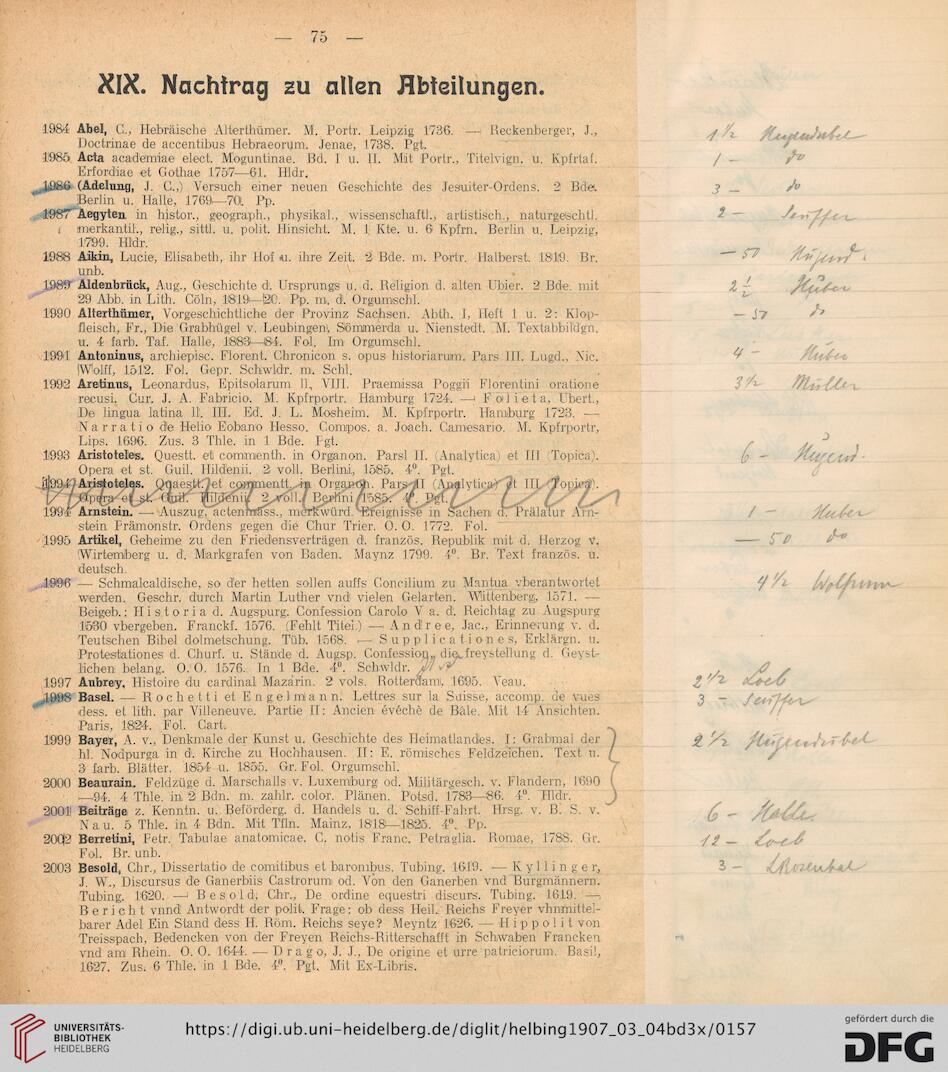 — 75 —
XIX. Nachtrag zu allen Abteilungen.
1984 Abel, C., Hebräische Alterthümer. M. Portr. Leipzig 1736. — Reckenberger, J.,
Doctrinae de accentibus Hebraeorum. Jenae, 1738. Pgt.
1 ½ Hugendubel
1985 Acta academiae elect. Moguntinae. Bd. I u. II. Mit Portr., Titelvign. u. Kpfrtaf.
Erfordiae et Gothae 1757—61. Hldr.
1 — do
1986 (Adelung, J. C.,) Versuch einer neuen Geschichte des Jesuiter-Ordens. 2 Bde.
Berlin u. Halle, 1769—70. Pp.
3 — do
1987 Aegyten in histor., geograph., physikal., wissenschaftl., artistisch., naturgeschtl.
merkantil., relig., sittl. u. polit. Hinsicht. M. 1 Kte. u. 6 Kpfrn. Berlin u. Leipzig,
1799. Hldr.
2 — Seuffer
1988 Aikin, Lucie, Elisabeth, ihr Hof u. ihre Zeit. 2 Bde. m. Portr. Halberst. 1819. Br.
unb.
— 50 Hugend.
1989 Aldenbrück, Aug., Geschichte d. Ursprungs u. d. Religion d. alten Ubier. 2 Bde. mit
29 Abb. in Lith. Cöln, 1819—20. Pp. m. d. Orgumschl.
2 ½ Huber
1990 Alterthümer, Vorgeschichtliche der Provinz Sachsen. Abth. I, Heft 1 u. 2: Klop-
fleisch, Fr., Die Grabhügel v. Leubingen, Sömmerda u. Nienstedt. M. Textabbildgn.
u. 4 farb. Taf. Halle, 1883—84. Fol. Im Orgumschl.
— 50 do
1991 Antoninus, archiepisc. Florent. Chronicon s. opus historiarum. Pars III. Lugd., Nic.
Wolff, 1512. Fol. Gepr. Schwldr. m. Schl.
4 — Huber
1992 Aretinus, Leonardus, Epitsolarum ll, VIII. Praemissa Poggii Florentini oratione
recusi. Cur. J. A. Fabricio. M. Kpfrportr. Hamburg 1724. — Folieta, Ubert.,
De lingua latina ll. III. Ed. J. L. Mosheim. M. Kpfrportr. Hamburg 1723. —
Narratio de Helio Eobano Hesso. Compos. a. Joach. Camesario. M. Kpfrportr,
Lips. 1696. Zus. 3 Thle. in 1 Bde. Pgt.
3 ½ Müller
1993 Aristoteles. Questt. et commenth. in Organon. Parsl II. (Analytica) et III (Topica).
Opera et st. Guil. Hildenii. 2 voll. Berlini, 1585. 4⁰. Pgt.
6 — Hugend.
1994 Aristoteles. Quaestt. et commentt. in Organon. Pars II (Analytica) et III (Topica).
Opera et st. Guil. Hildenii. 2 voll. Berlini 1585. 4⁰. Pgt.
1994 Arnstein. — Auszug, actenmäss., merkwürd. Ereignisse in Sachen d. Prälatur Arn-
stein Prämonstr. Ordens gegen die Chur Trier. O. O. 1772. Fol.
1 — Huber
1995 Artikel, Geheime zu den Friedensverträgen d. französ. Republik mit d. Herzog v.
Wirtemberg u. d. Markgrafen von Baden. Maynz 1799. 4⁰. Br. Text französ. u.
deutsch.
— 50 do
1996 — Schmalcaldische, so der hetten sollen auffs Concilium zu Mantua vberantwortet
werden. Geschr. durch Martin Luther vnd vielen Gelarten. Wittenberg, 1571. —
Beigeb.: Historia d. Augspurg. Confession Carolo V a. d. Reichtag zu Augspurg
1530 vbergeben. Franckf. 1576. (Fehlt Titel.) — Andree, Jac., Erinnerung v. d.
Teutschen Bibel dolmetschung. Tüb. 1568. — Supplicationes, Erklärgn. u.
Protestationes d. Churf. u. Stände d. Augsp. Confession, die freystellung d. Geyst-
lichen belang. O. O. 1576. In 1 Bde. 4⁰. Schwldr.
4 ½ Wolfrum
1997 Aubrey, Histoire du cardinal Mazarin. 2 vols. Rotterdam, 1695. Veau.
2 ½ Loeb
1998 Basel. — Rochetti et Engelmann. Lettres sur la Suisse, accomp. de vues
dess. et lith. par Villeneuve. Partie II: Ancien évêchè de Bâle. Mit 14 Ansichten.
Paris, 1824. Fol. Cart.
3 — Seuffer
1999 Bayer, A. v., Denkmale der Kunst u. Geschichte des Heimatlandes. I: Grabmal der
hl. Nodpurga in d. Kirche zu Hochhausen. II: E. römisches Feldzeichen. Text u.
3 farb. Blätter. 1854 u. 1855. Gr. Fol. Orgumschl.
2 ½ Hugendubel
2000 Beaurain. Feldzüge d. Marschalls v. Luxemburg od. Militärgesch. v. Flandern, 1690
—94. 4 Thle. in 2 Bdn. m. zahlr. color. Plänen. Potsd. 1783—86. 4⁰. Hldr.
2001 Beiträge z. Kenntn. u. Beförderg. d. Handels u. d. Schiff-Fahrt. Hrsg. v. B. S. v.
Nau. 5 Thle. in 4 Bdn. Mit Tfln. Mainz, 1818—1825. 4⁰. Pp.
6 — Halle
2002 Berretini, Petr. Tabulae anatomicae. C. notis Franc. Petraglia. Romae, 1788. Gr.
Fol. Br. unb.
12 — Loeb
2003 Besold, Chr., Dissertatio de comitibus et baronibus. Tubing. 1619. — Kyllinger,
J. W., Discursus de Ganerbiis Castrorum od. Von den Ganerben vnd Burgmännern.
Tubing. 1620. — Besold, Chr., De ordine equestri discurs. Tubing. 1619. —
Bericht vnnd Antwordt der polit. Frage: ob dess Heil. Reichs Freyer vhnmittel-
barer Adel Ein Stand dess H. Röm. Reichs seye? Meyntz 1626. — Hippolit von
Treisspach, Bedencken von der Freyen Reichs-Ritterschafft in Schwaben Francken
vnd am Rhein. O. O. 1644. — Drago, J. J., De origine et urre patriciorum. Basil,
1627. Zus. 6 Thle. in 1 Bde. 4⁰. Pgt. Mit Ex-Libris.
3 — L Rosenthal
UNIVERSITÄTS-
BIBLIOTHEK
HEIDELBERG
https://digi.ub.uni-heidelberg.de/diglit/helbing1907_03_04bd3x/0157
gefördert durch die
DFG